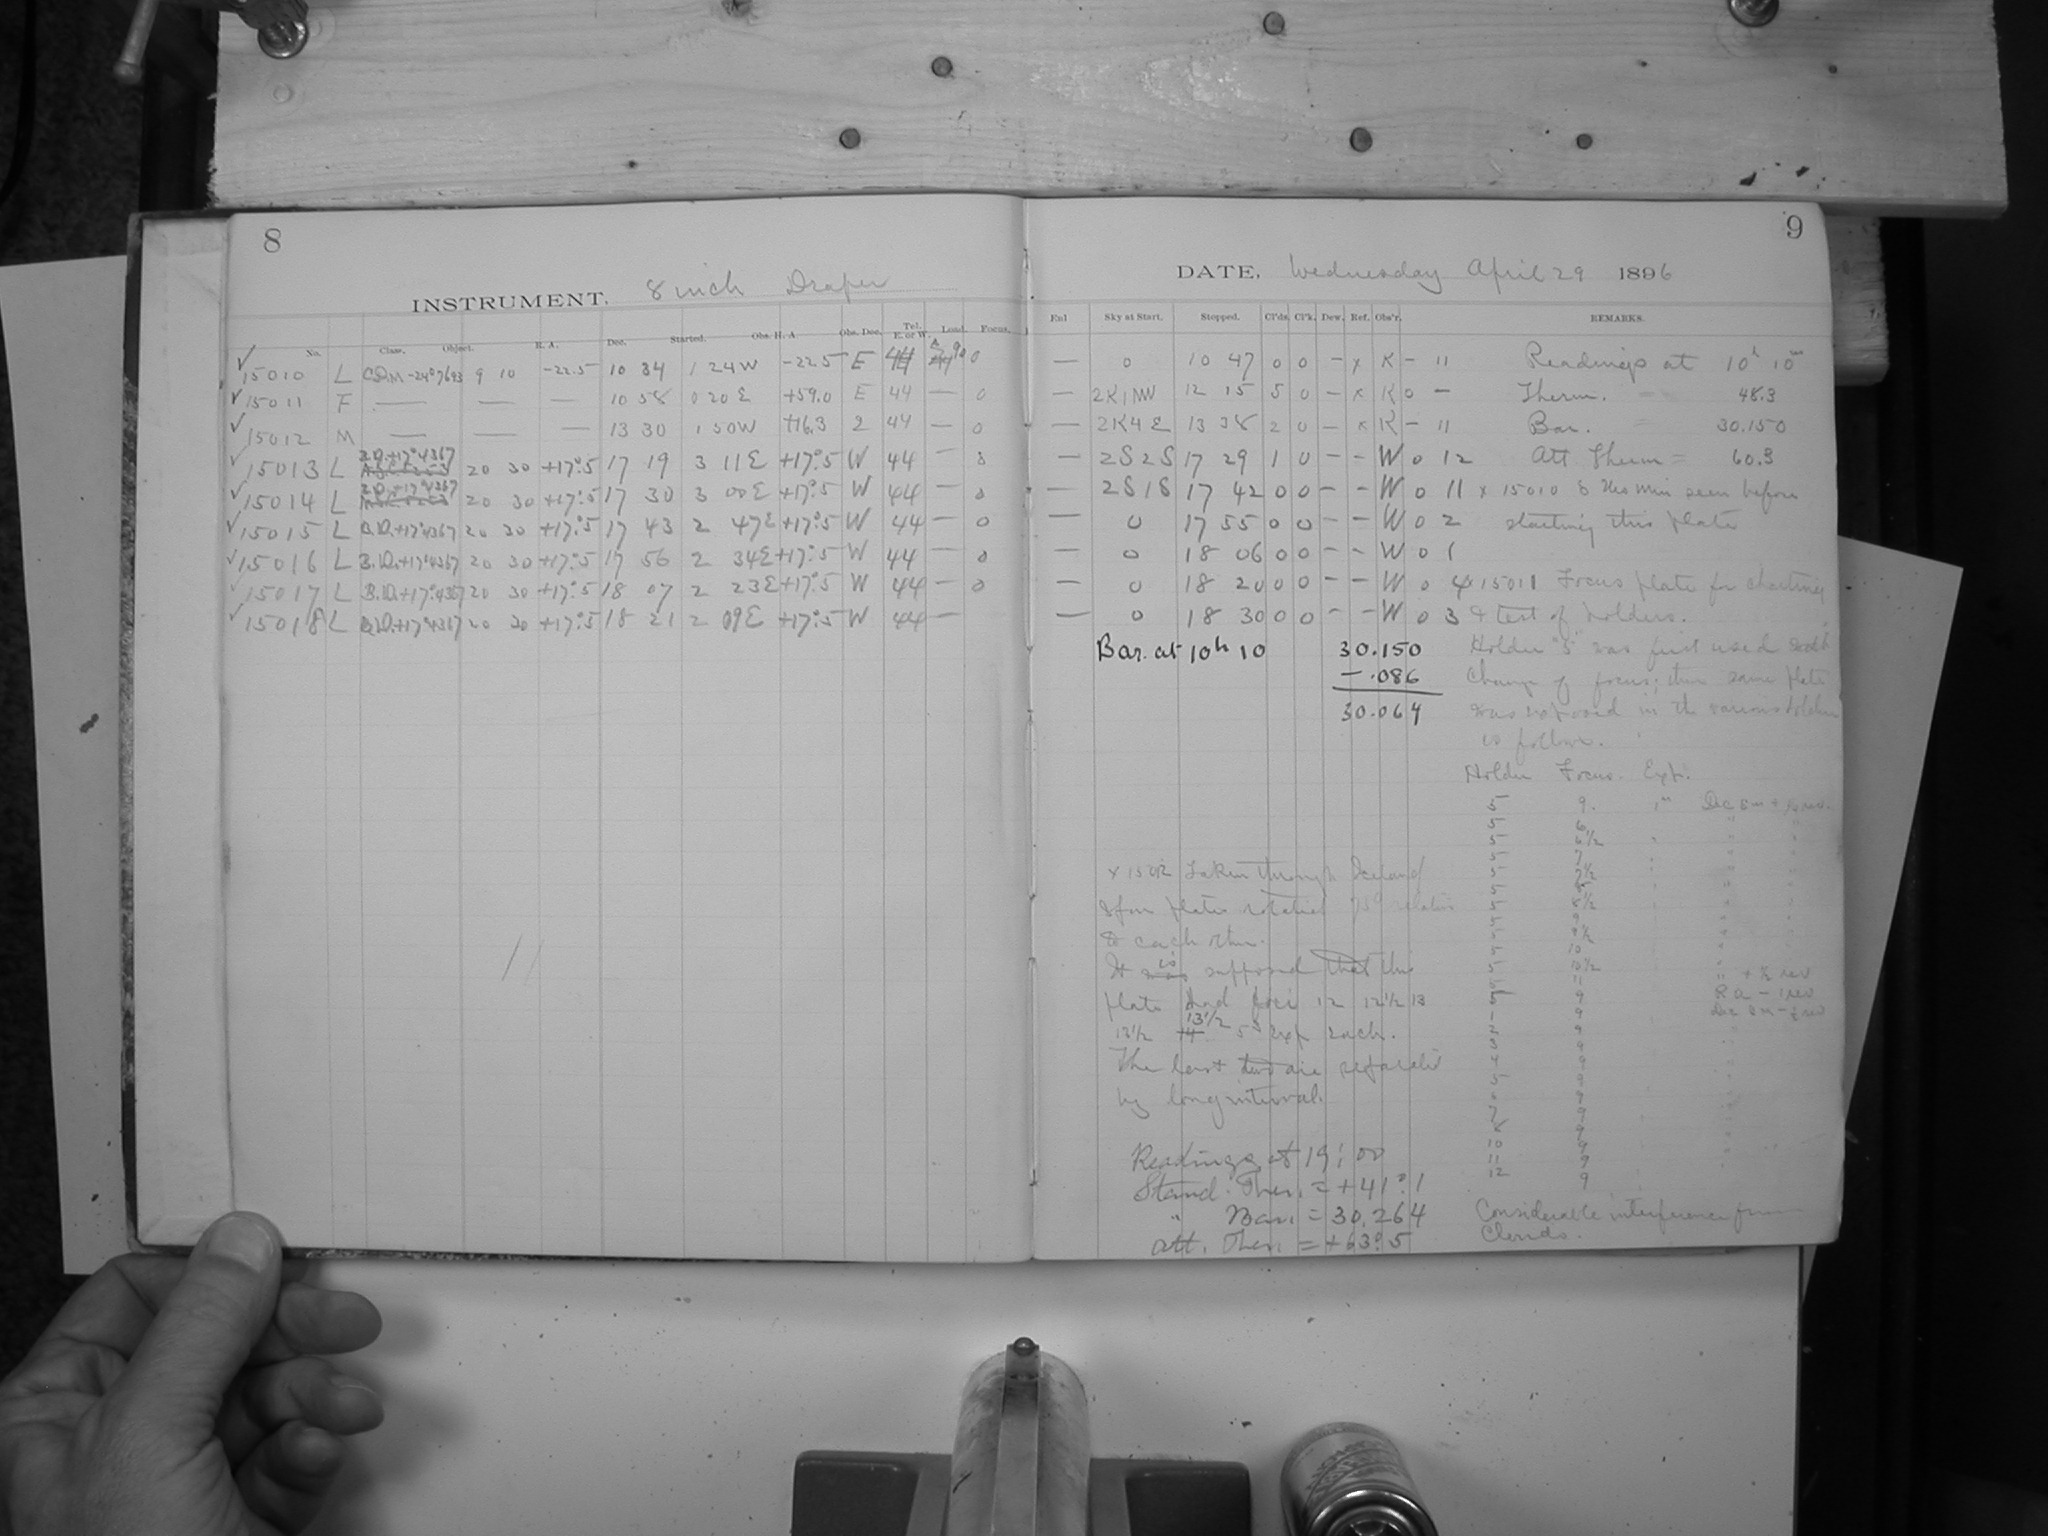 8
INSTRUMENT. 8 inch Draper
No. Class. Object. R. A. Dec. Started. Obs. H. A Obs. Dec. Tel. E. or W. Load. Focus.
15010 L C.D.M -24°7693 9 10 -22.5 10 34 1 24W -22.5 E 44 0
15011 F — — — 10 58 0 20 E +59.0 E 44 — 0
15012 M — — — 13 30 1 50W +16.3 2 44 — 0
15013 L B.D.+17°4367 20 30 +17°.5 17 19 3 11E +17°.5 W 44 — 0
15014 L B.D.+17°4367 20 30 +17°.5 17 30 3 00E +17°.5 W 44 — 0
15015 L B.D.+17°4367 20 30 +17°.5 17 43 2 47E +17°.5 W 44 — 0
15016 L B.D.+17°4367 20 30 +17°.5 17 56 2 34E +17°.5 W 44 — 0
15017 L B.D.+17°4367 20 30 +17°.5 18 07 2 23E +17°.5 W 44 — 0
15018 L B.D.+17°4367 20 30 +17°.5 18 21 2 09E +17°.5 W 44 —
9
DATE, Wednesday April 29 1896
Enl Sky at Start. Stopped. Cl'ds. Cl'k. Dew. Ref. Obs'r. REMARKS.
— 0 10 47 0 0 – x K – 11 Readings at 10h 10m
— 2K1NW 12 15 5 0 – x K 0 – Therm. 48.3
— 2K4E 13 38 2 0 – x K – 11 Bar. 30.150
— 2S2S 17 29 1 0 – – W 0 12 Att Therm = 60.8
— 2S1S 17 42 0 0 – – W 0 11 x 15010 seen before
— 0 17 55 0 0 – – W 0 2 starting this plate
— 0 18 06 0 0 – – W 0 1
— 0 18 20 0 0 – – W 0 4 x 15011 Focus plate for charting
— 0 18 30 0 0 – – W 0 3 & test of holders.
Bar. at 10h 10 30.150
– .086
30.064
Holder "5" was first used
change of focus; then same plate
was exposed in the various holders
as follows.
Holder Focus. Exp.
5 9. 1m
5 6
5 6½
5 7
5 7½
5 8
5 8½
5 9
5 9½
5 10
5 10½
5 11
x 15012 Taken through Iceland
Spar plates rotated
to each other.
It is supposed that this
plate had foci 12 12½ 13
13½ 13½ 5s exp each.
The last two are separated
by long interval.
10 9
11 9
12 9
Readings at 19:00
Stand. Ther. = +41°.1
" Bar. = 30.264
Att. Ther. = +63°.5
Considerable interference from
Clouds.